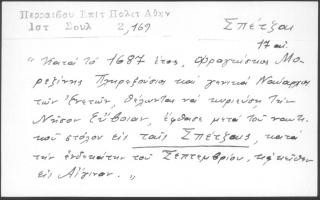 Περραιβου Επιτ Πολιτ Αθην
Ιστ Σουλ 2,169
Σπέτζαι
17 αι.
"Κατά τό 1687 έτος, φραγκίσκος Μο-
ρεζίνης Πληρεξούσιος καί γενικός Ναύαρχος
των Ενετών, θέλωντας νά κυριεύση την
Νήσον Εύβοιαν, έφθασε μετά του ναυτι-
κού στόλου εις ταις Σπέτζαις, κατά
την ενδεκάτην του Σεπτεμβρίου, κακείθεν
εις Αίγιναν."